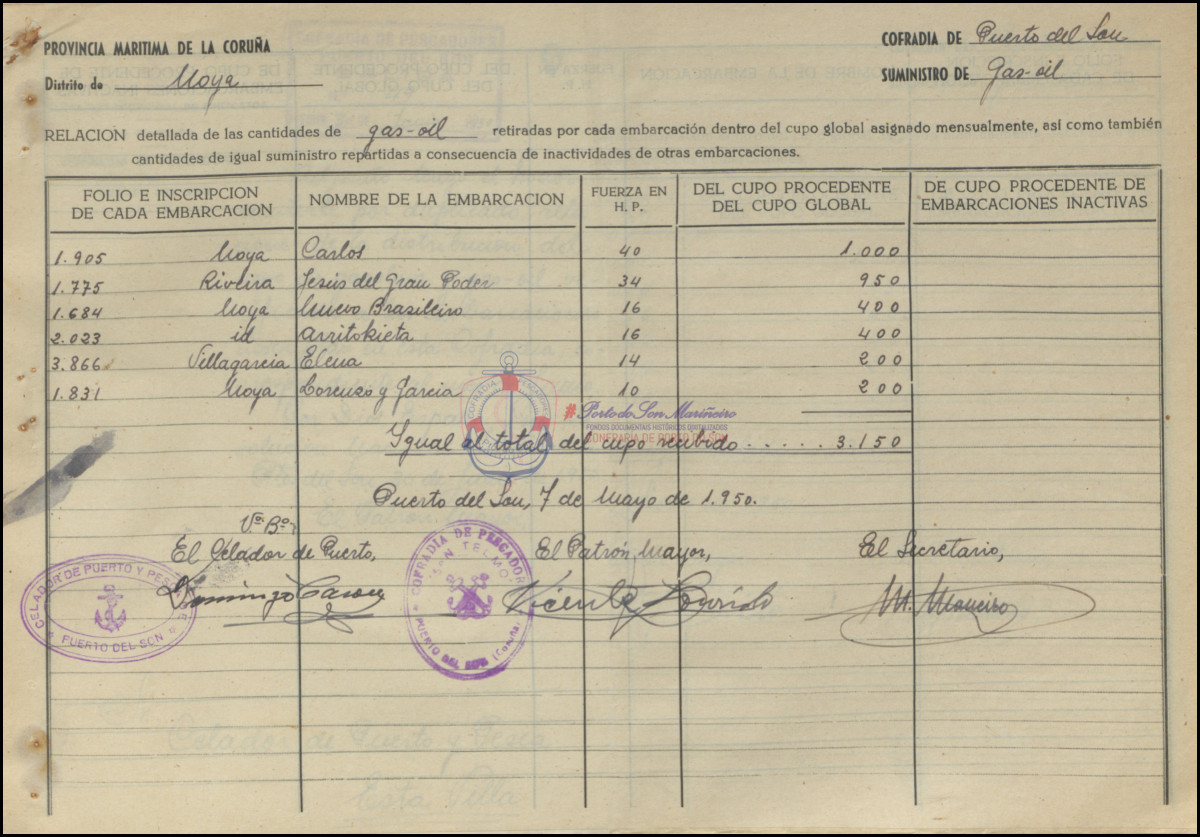 PROVINCIA MARITIMA DE LA CORUÑA
COFRADIA DE Puerto del Son
Distrito de Noya
SUMINISTRO DE Gas-oil
RELACION detallada de las cantidades de gas-oil retiradas por cada embarcación dentro del cupo global asignado mensualmente, así como también
cantidades de igual suministro repartidas a consecuencia de inactividades de otras embarcaciones.
FOLIO E INSCRIPCION DE CADA EMBARCACION NOMBRE DE LA EMBARCACION FUERZA EN H. P. DEL CUPO PROCEDENTE DEL CUPO GLOBAL DE CUPO PROCEDENTE DE EMBARCACIONES INACTIVAS
1.905 Noya Carlos 40 1.000
1.775 Riveira Jesús del Gran Poder 34 950
1.684 Noya Nuevo Brasileiro 16 400
2.023 id Arritokieta 16 400
3.866 Villagarcia Elena 14 200
1.831 Noya Lorenzo y Garcia 10 200
#Porto do Son Mariñeiro
FONDOS DOCUMENTAIS HISTÓRICOS DIGITALIZADOS
CONFRARÍA DE PORTO DO SON
Igual al total del cupo recibido ..... 3.150
Puerto del Son, 7 de Mayo de 1.950.
Vº. Bº.
El Celador de Puerto, El Patrón Mayor, El Secretario,
CELADOR DE PUERTO Y PESCA
PUERTO DEL SON
COFRADIA DE PESCADORES
SAN TELMO
PUERTO DEL SON (Coruña)
Domingo
Vicente
M. Maneiro
Celador de Puerto y Pesca
Esta Villa